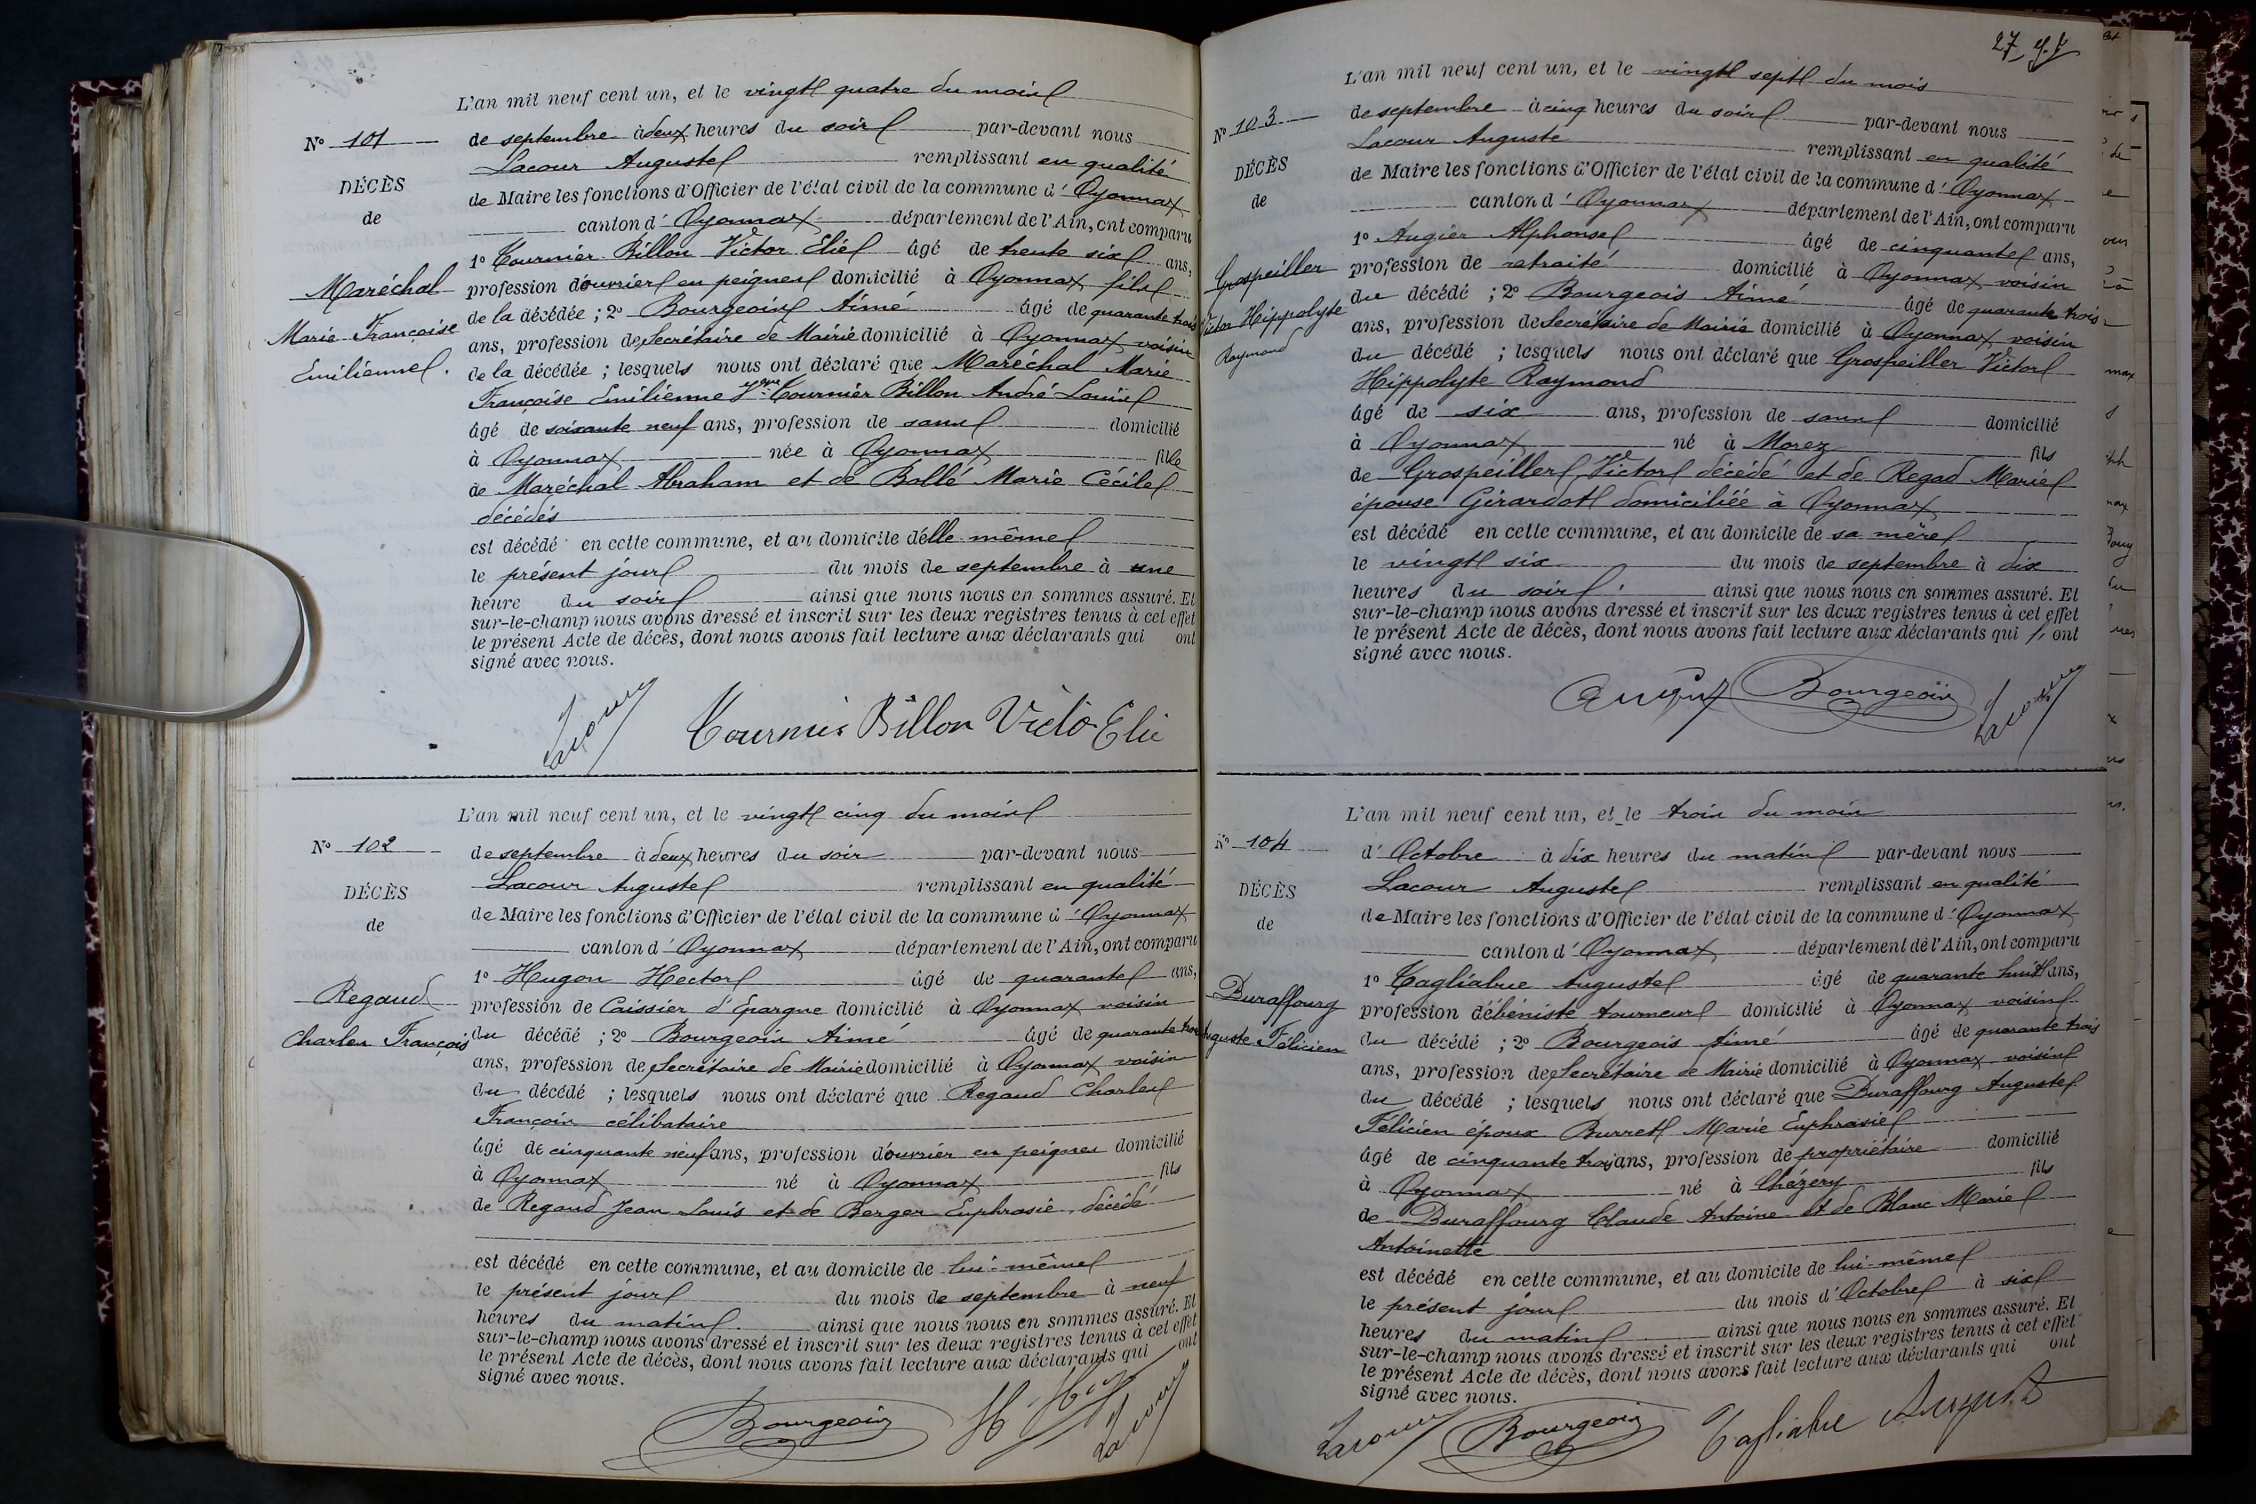 L'an mil neuf cent un, et le vingt quatre du mois
N° 101
de septembre à deux heures du soir par-devant nous
Lacour Auguste remplissant en qualité
DÉCÈS
de Maire les fonctions d'Officier de l'état civil de la commune d'Oyonnax
de
canton d'Oyonnax département de l'Ain, ont comparu
1° Tournier Billon Victor Elie âgé de trente six ans,
Maréchal
Marie Françoise
Emilienne.
profession d'ouvrier en peignes domicilié à Oyonnax fils
de la décédée ; 2° Bourgeois Aimé âgé de quarante trois
ans, profession de Secrétaire de Mairie domicilié à Oyonnax voisin
de la décédée ; lesquels nous ont déclaré que Maréchal Marie
Françoise Emilienne Tournier Billon André Louis
âgé de soixante neuf ans, profession de sans domicilié
à Oyonnax née à Oyonnax fille
de Maréchal Abraham et de Bollé Marie Cécile
décédés
est décédé en cette commune, et au domicile d'elle-même
le présent jour du mois de septembre à une
heure du soir ainsi que nous nous en sommes assuré. Et
sur-le-champ nous avons dressé et inscrit sur les deux registres tenus à cet effet
le présent Acte de décès, dont nous avons fait lecture aux déclarants qui ont
signé avec nous.
Lacour Tournier Billon Victo Elie
L'an mil neuf cent un, et le vingt cinq du mois
N° 102
de septembre à deux heures du soir par-devant nous
DÉCÈS
Lacour Auguste remplissant en qualité
de
de Maire les fonctions d'Officier de l'état civil de la commune d'Oyonnax
canton d'Oyonnax département de l'Ain, ont comparu
1° Hugon Hector âgé de quarante ans,
Regaud
Charles François
profession de Caissier d'Epargne domicilié à Oyonnax voisin
du décédé ; 2° Bourgeois Aimé âgé de quarante trois
ans, profession de Secrétaire de Mairie domicilié à Oyonnax voisin
du décédé ; lesquels nous ont déclaré que Regaud Charles
François célibataire
âgé de cinquante neuf ans, profession d'ouvrier en peignes domicilié
à Oyonnax né à Oyonnax fils
de Regaud Jean Louis et de Berger Euphrasie, décédé
est décédé en cette commune, et au domicile de lui-même
le présent jour du mois de septembre à neuf
heures du matin ainsi que nous nous en sommes assuré. Et
sur-le-champ nous avons dressé et inscrit sur les deux registres tenus à cet effet
le présent Acte de décès, dont nous avons fait lecture aux déclarants qui ont
signé avec nous.
Bourgeois Lacour
27
L'an mil neuf cent un, et le vingt sept du mois
N° 103
de septembre à cinq heures du soir par-devant nous
Lacour Auguste remplissant en qualité
DÉCÈS
de Maire les fonctions d'Officier de l'état civil de la commune d'Oyonnax
de
canton d'Oyonnax département de l'Ain, ont comparu
1° Augier Alphonse âgé de cinquante ans,
Grospeiller
Victor Hippolyte
Raymond
profession de retraité domicilié à Oyonnax voisin
du décédé ; 2° Bourgeois Aimé âgé de quarante trois
ans, profession de Secrétaire de Mairie domicilié à Oyonnax voisin
du décédé ; lesquels nous ont déclaré que Grospeiller Victor
Hippolyte Raymond
âgé de six ans, profession de sans domicilié
à Oyonnax né à Morez fils
de Grospeiller Victor décédé et de Regad Marie
épouse Girardot domiciliée à Oyonnax
est décédé en cette commune, et au domicile de sa mère
le vingt six du mois de septembre à dix
heures du soir ainsi que nous nous en sommes assuré. Et
sur-le-champ nous avons dressé et inscrit sur les deux registres tenus à cet effet
le présent Acte de décès, dont nous avons fait lecture aux déclarants qui ont
signé avec nous.
Augier Bourgeois Lacour
L'an mil neuf cent un, et le trois du mois
N° 104
d'Octobre à dix heures du matin par-devant nous
DÉCÈS
Lacour Auguste remplissant en qualité
de
de Maire les fonctions d'Officier de l'état civil de la commune d'Oyonnax
canton d'Oyonnax département de l'Ain, ont comparu
1° Tagliabue Auguste âgé de quarante huit ans,
Duraffourg
Auguste Félicien
profession d'ébéniste tourneur domicilié à Oyonnax voisin
du décédé ; 2° Bourgeois Aimé âgé de quarante trois
ans, profession de Secrétaire de Mairie domicilié à Oyonnax voisin
du décédé ; lesquels nous ont déclaré que Duraffourg Auguste
Félicien époux Burret Marie Euphrasie
âgé de cinquante trois ans, profession de propriétaire domicilié
à Oyonnax né à Chézery fils
de Duraffourg Claude Antoine et de Blanc Marie
Antoinette
est décédé en cette commune, et au domicile de lui-même
le présent jour du mois d'Octobre à six
heures du matin ainsi que nous nous en sommes assuré. Et
sur-le-champ nous avons dressé et inscrit sur les deux registres tenus à cet effet
le présent Acte de décès, dont nous avons fait lecture aux déclarants qui ont
signé avec nous.
Lacour Bourgeois Tagliabue August